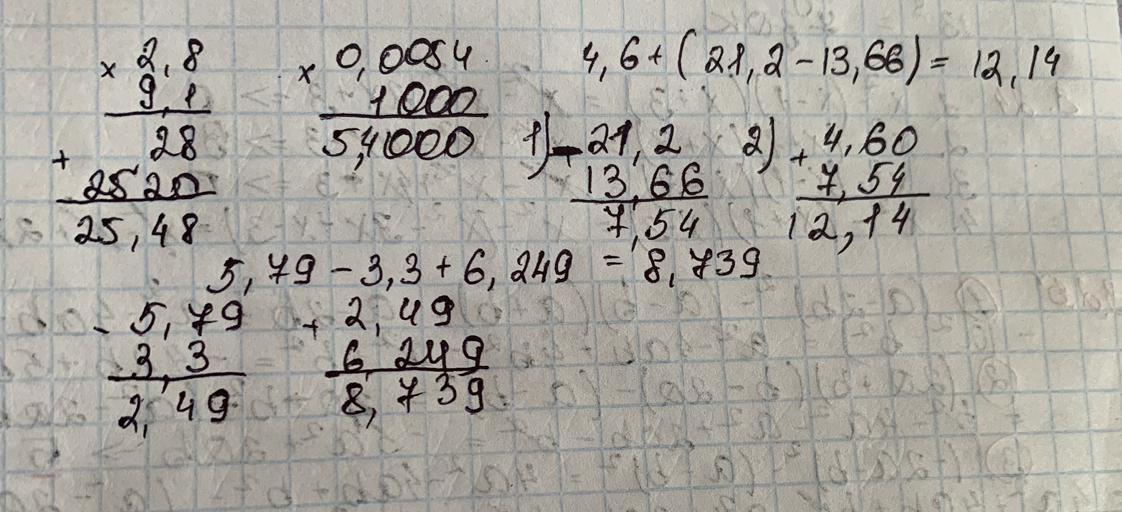 × 2,8
9,1
28
+ 2520
25,48
× 0,0054
1000
5,4000
4,6+(21,2-13,66)= 12,14
1) - 21,2
13,66
7,54
2) + 4,60
7,54
12,14
5,79-3,3+6,249 = 8,739
- 5,79
3,3
2,49
+ 2,49
6,249
8,739